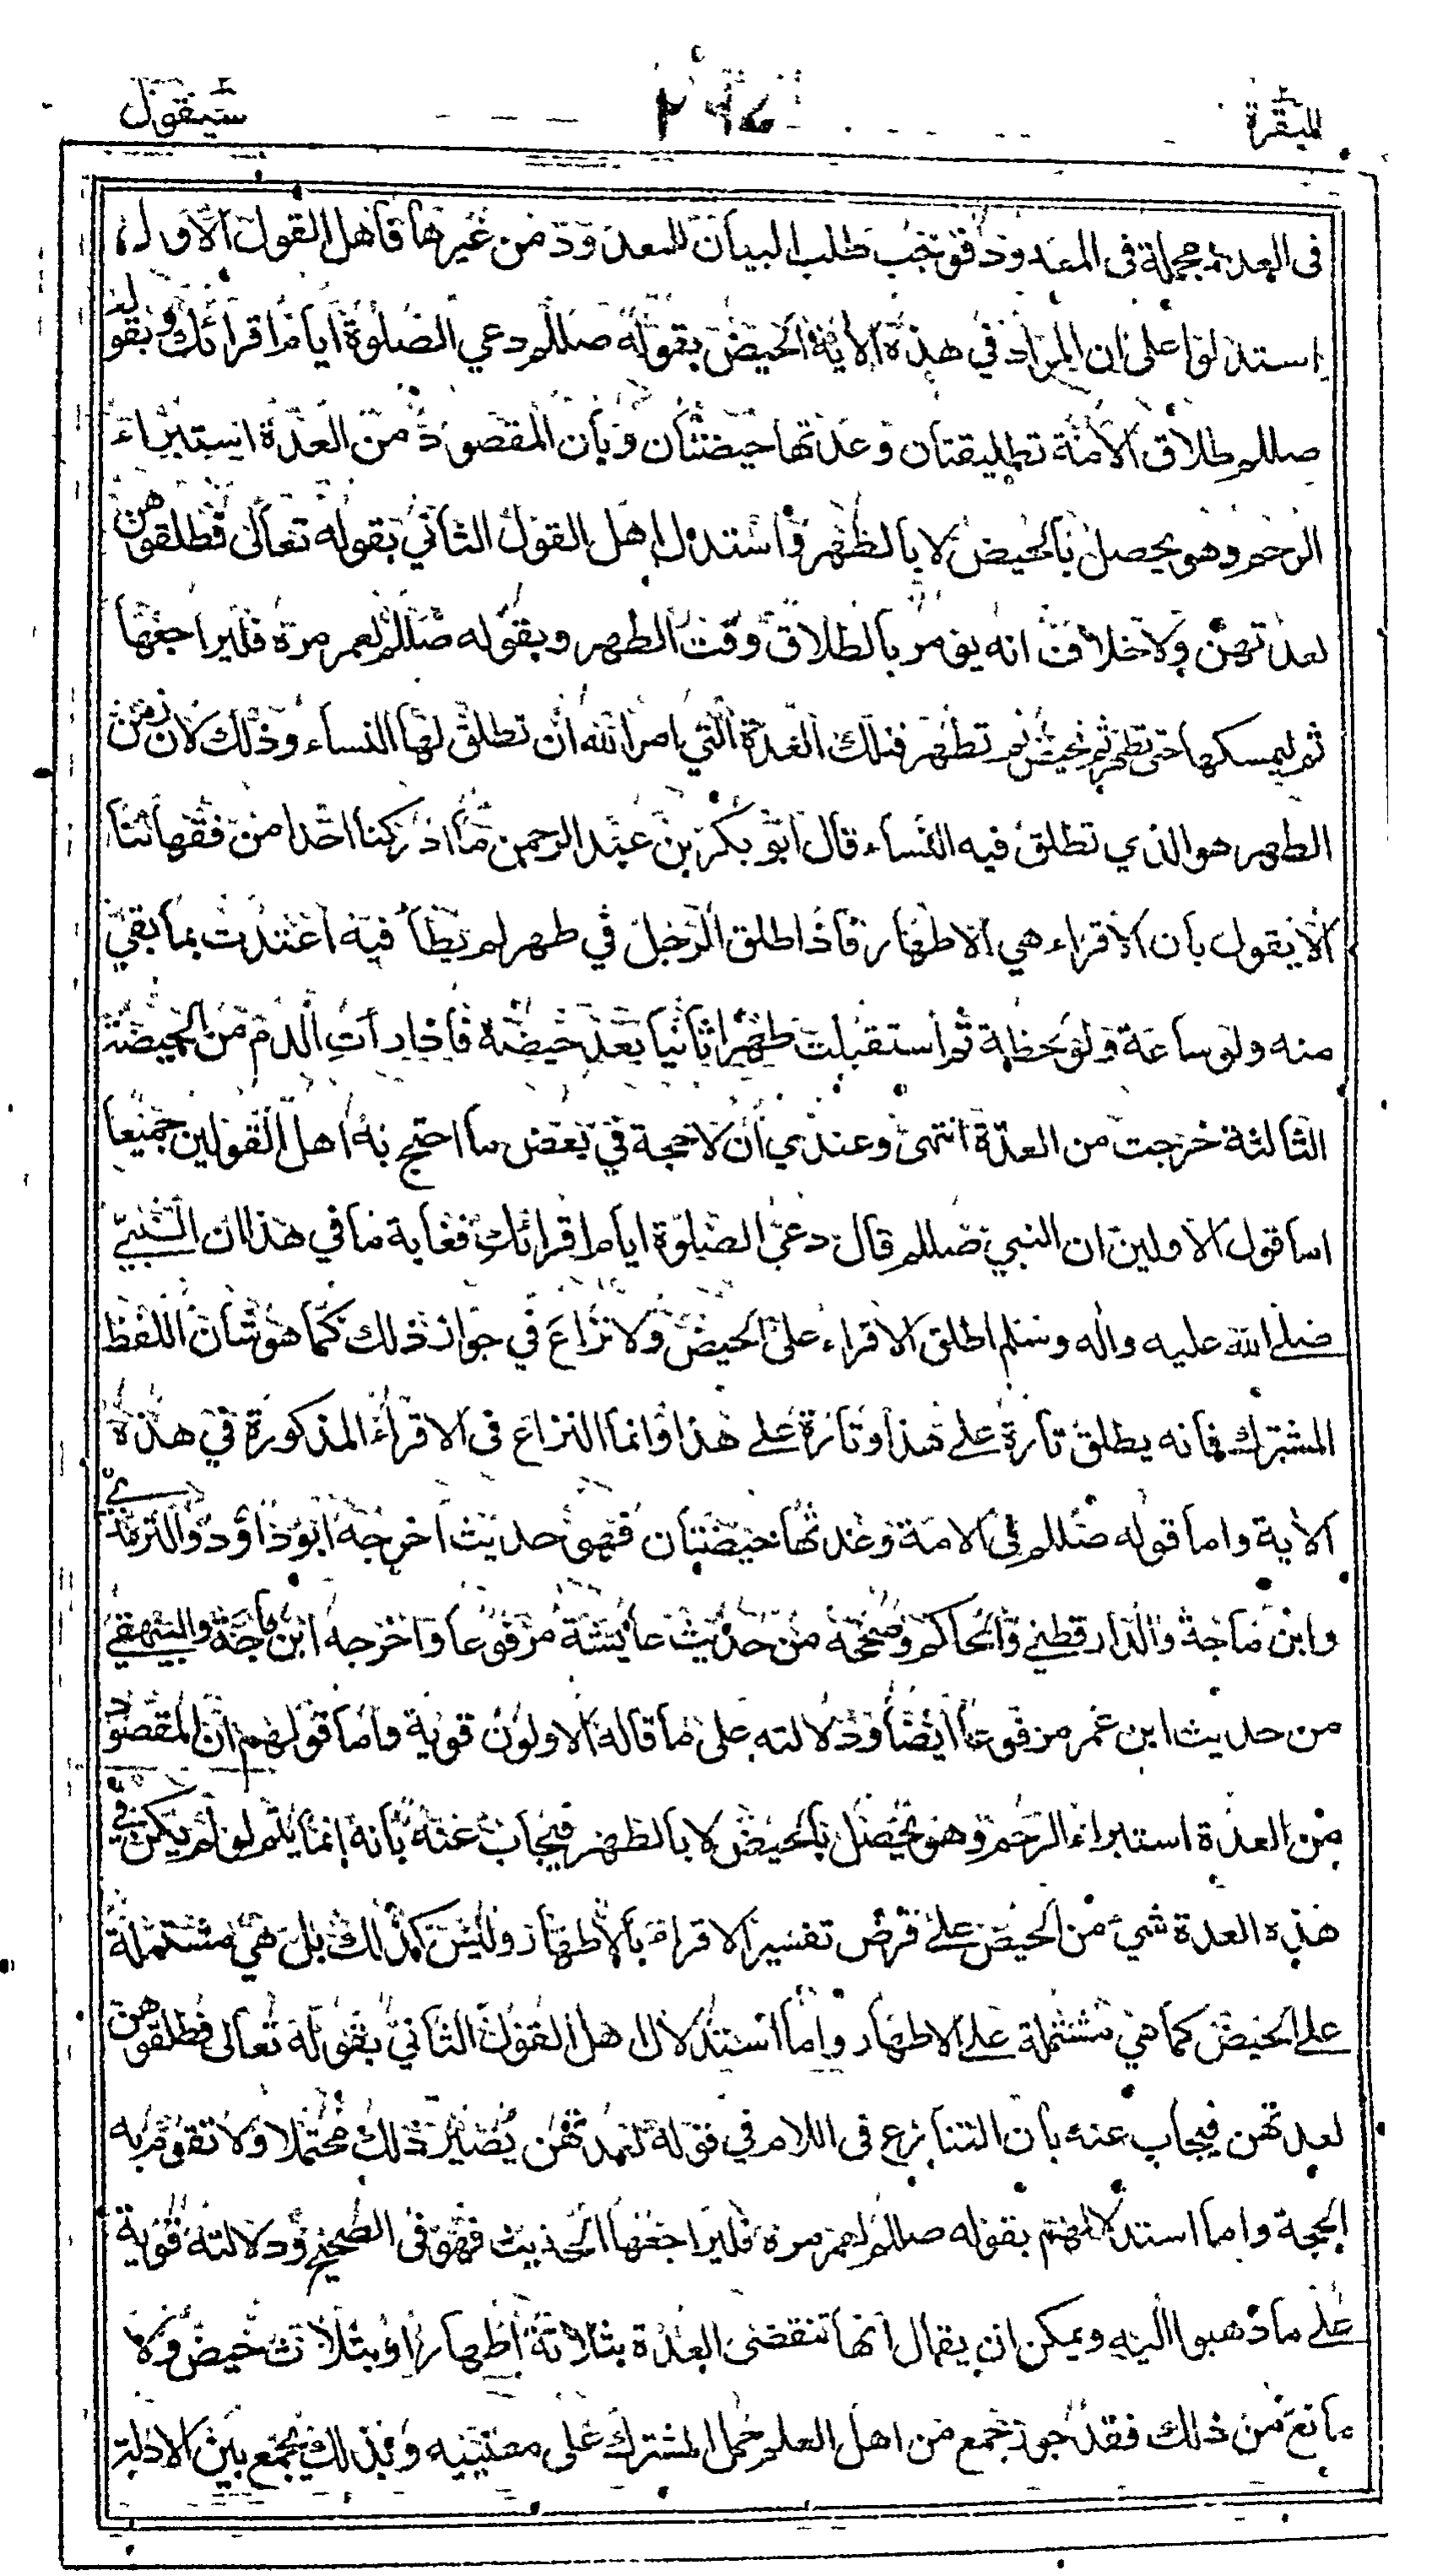 البقرة ٢٩٤ سيقول
فى العدة مجملة فى المعدود فوجب طلب البيان للمعدود من غيرها فاهل القول الاول
استدلوا على ان المراد في هذه الآية الحيض بقوله صللم دعي الصلوة ايام اقرائك وبقوله
صللم طلاق الامة تطليقتان وعدتها حيضتان وبان المقصود من العدة استبراء
الرحم وهو يحصل بالحيض لا بالطهر واستدل اهل القول الثاني بقوله تعالى فطلقوهن
لعدتهن ولا خلاف انه يؤمر بالطلاق وقت الطهر وبقوله صللم لعمر مره فليراجعها
ثم ليمسكها حتى تطهر ثم تحيض ثم تطهر فتلك العدة التي امر الله ان تطلق لها النساء وذلك لان زمن
الطهر هو الذي تطلق فيه النساء قال ابو بكر بن عبد الرحمن ما ادركنا احدا من فقهائنا
الا يقول بان الاقراء هي الاطهار فاذا طلق الرجل في طهر لم يطأ فيه اعتدت بما بقي
منه ولو ساعة ولو لحظة ثم استقبلت طهرا ثانيا بعد حيضة فاذا رأت الدم من الحيضة
الثالثة خرجت من العدة انتهى وعندي ان لا حجة في بعض ما احتج به اهل القولين جميعا
اما قول الاولين ان النبي صللم قال دعي الصلوة ايام اقرائك فغاية ما في هذا ان النبي
صلے الله عليه واله وسلم اطلق الاقراء على الحيض ولا نزاع في جواز ذلك كما هو شان اللفظ
المشترك فانه يطلق تارة علے هذا وتارة علے هذا وانما النزاع فى الاقراء المذكورة في هذه
الآية واما قوله صللم فى الامة وعدتها حيضتان فهو حديث اخرجه ابو داؤد والترمذي
وابن ماجة والدارقطني والحاكم وصححه من حديث عايشة مرفوعا واخرجه ابن ماجة والبيهقي
من حديث ابن عمر مرفوعا ايضا ودلالته على ما قاله الاولون قوية واما قولهم ان المقصود
من العدة استبراء الرحم وهو يحصل بالحيض لا بالطهر فيجاب عنه بانه انما يتم لو لم يكن في
هذه العدة شيء من الحيض علے فرض تفسير الاقراء بالاطهار وليس كذلك بل هي مشتملة
علے الحيض كما هي مشتملة علے الاطهار واما استدلال اهل القول الثاني بقوله تعالى فطلقوهن
لعدتهن فيجاب عنه بان التنازع فى اللام في قوله لعدتهن يصير ذلك محتملا ولا تقوم به
الحجة واما استدلالهم بقوله صللم لعمر مره فليراجعها الحديث فهو فى الصحيح ودلالته قوية
علے ما ذهبوا اليه ويمكن ان يقال انها تنقضى العدة بثلاثة اطهار او بثلاث حيض ولا
مانع من ذلك فقد جوز جمع من اهل العلم حمل المشترك على معنييه وبذلك يجمع بين الادلة